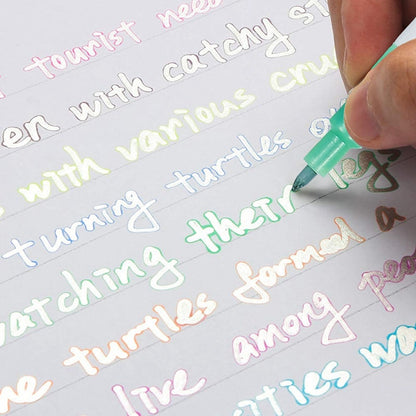 tourist need
en with catchy st
with various cru
turning turtles o
watching their legs
me turtles formed a
live among peo
cities wa